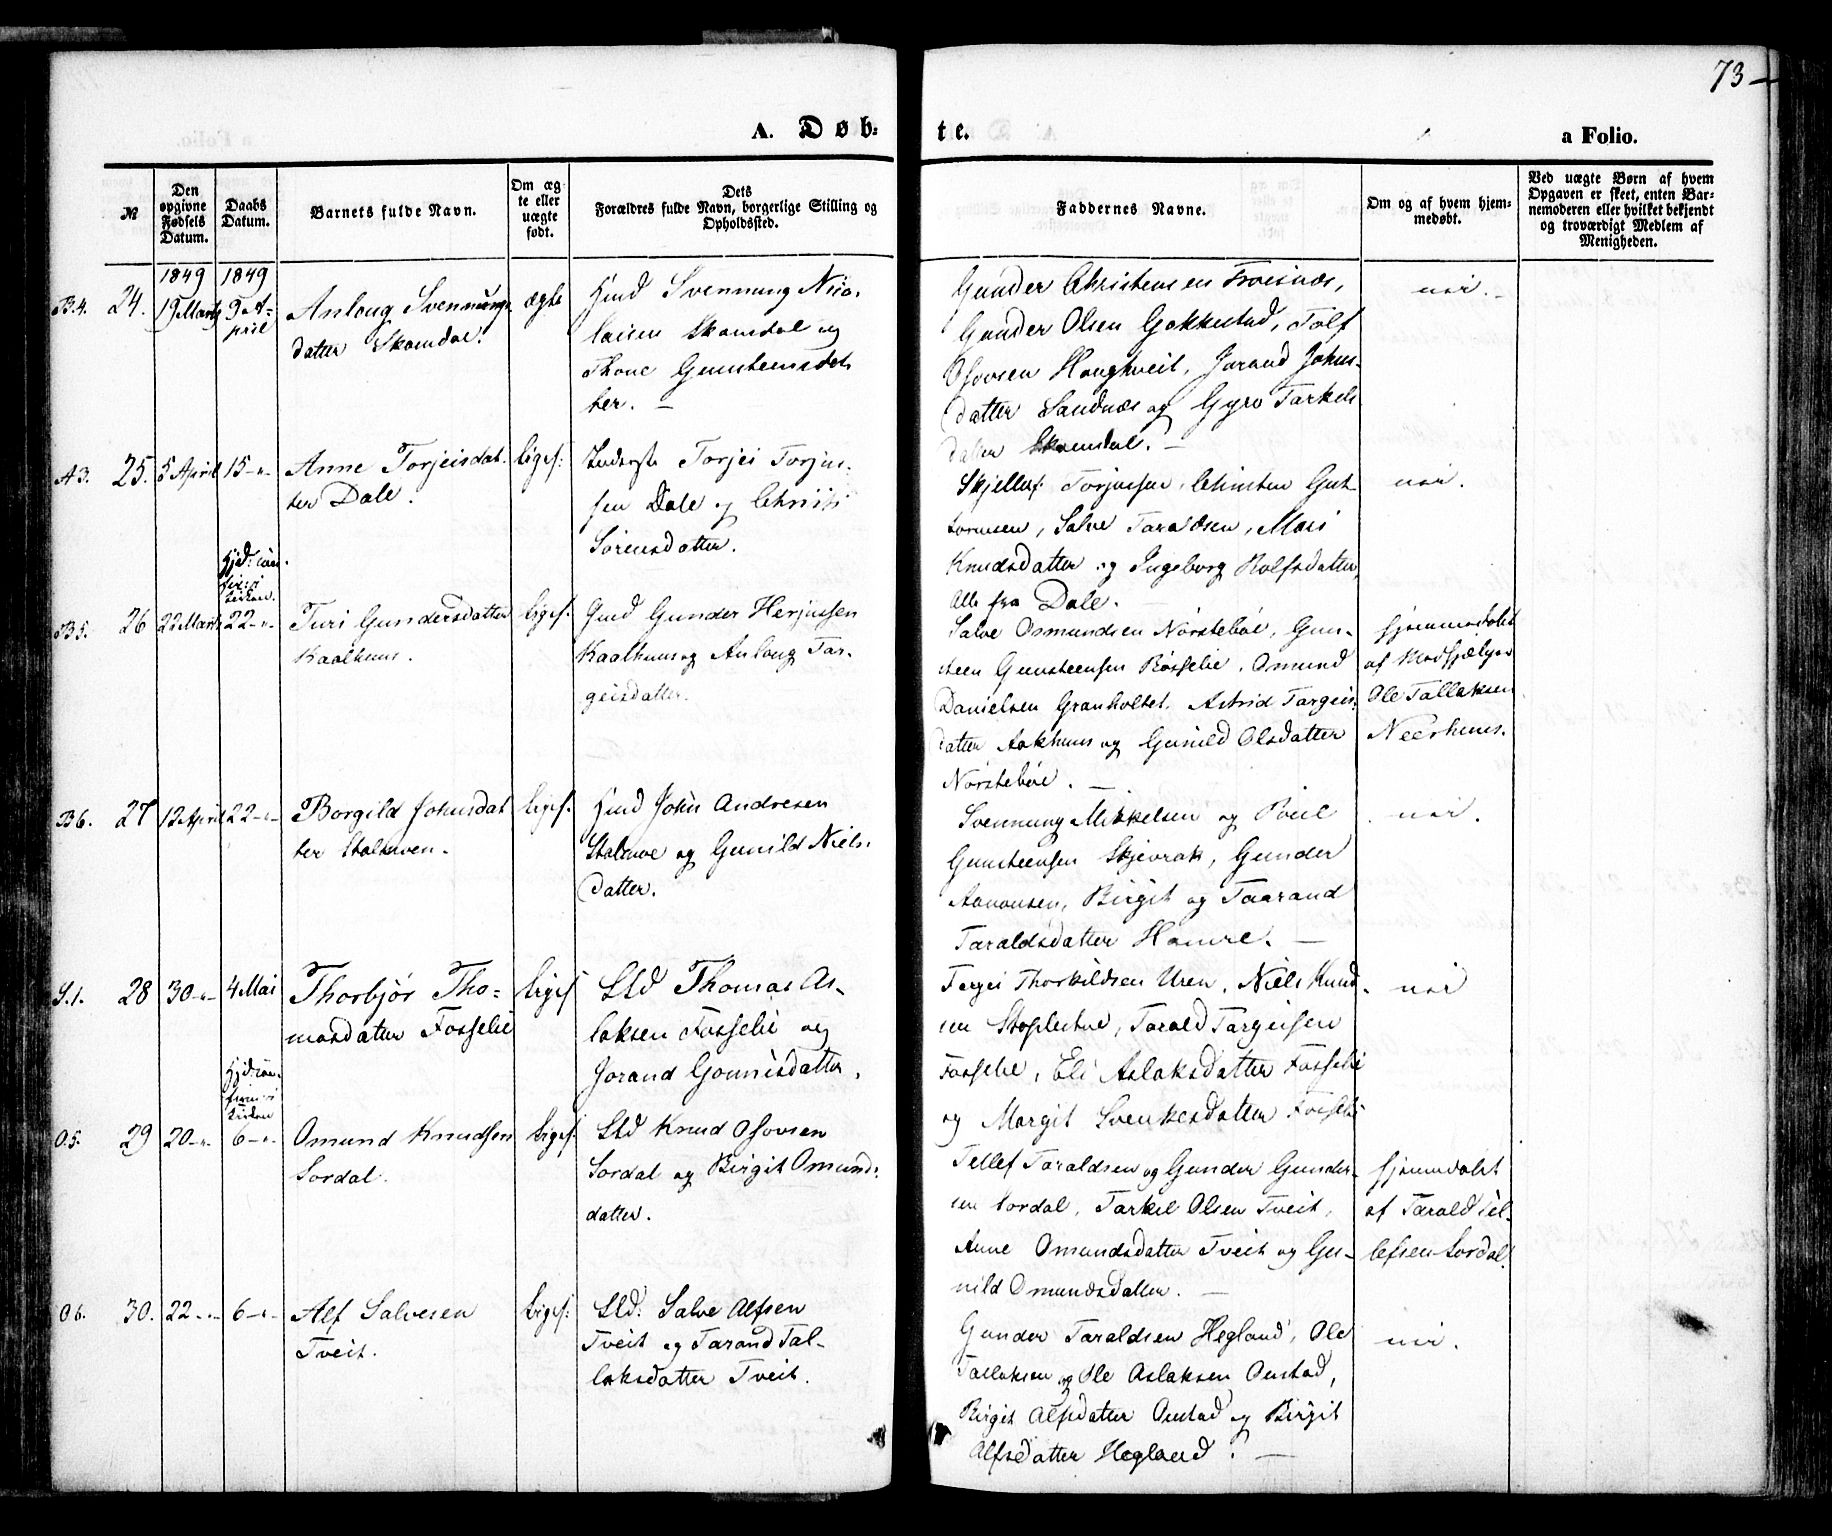 73
A. Døb-
te.
a Folio.
№
Den opgivne Fødsels Datum.
Daabs Datum.
Barnets fulde Navn.
Om ægte eller uægte født.
Dets Forældres fulde Navn, borgerlige Stilling og Opholdssted.
Faddernes Navne.
Om og af hvem hjemmedøbt.
Ved uægte Børn af hvem Opgaven er skeet, enten Barnemoderen eller hvilket bekjendt og troværdigt Medlem af Menigheden.
1849 1849
B.4. 24. 19 Marts 9 April
Anloug Svennungs
datter Skomdal.
ægte
Gmd Svennung Nico-
laisen Skomdal og
Thone Gunsteensdat
ter. —
Gunder Christensen Froisnæs,
Gunder Olsen Gakkestad, Tolf
Osovsen Haugtveit, Jorand Johns-
datter Sandnæs og Gyro Tarkels
datter Skomdal. —
nei. -
A3. 25. 5 April 15 -"-
Anne Torjeisdat-
ter Dale.
ligef:
Inderste Torjei Torjus-
sen Dale og Christi
Sørensdatter.
Skjellef Torjussen, Christen Gut-
tormsen, Salve Taraldsen, Mari
Knudsdatter og Ingeborg Rolfsdatter,
Alle fra Dale.
nei.
B5. 26 22 Marts 22 -"-
Turi Gundersdatter
Kaalhuus.
ligef.
Gmd Gunder Herjussen
Kaalhuus og Anloug Tar-
geisdatter.
Salve Osmundsen Nørstebøe, Gun-
steen Gunsteensen Røsselie, Osmund
Danielsen Granholtet, Astrid Targeis-
datter Aakhuus og Gunild Olsdatter
Nørstebøe. —
hjemmedøbt
af Medhjælper
Ole Tallaksen
Neerhuus.
B6. 27 12 April 22 -"-
Borgild Johnsdat
ter Stalleven.
ligef.
Gmd John Andresen
og Gunild Niels-
datter.
Svennung Mikkelsen og Poul
Gunsteensen Skjevrak, Gunder
Aanonsen, Birgit og Taarand
Taraldsdatter Hamre. —
nei.
S.1. 28 30 -"- 4 Mai
Thorbjør Tho-
masdatter Fosselie
ligef
Sld Thomas As-
laksen Fosselie og
Jorand Gonnisdatter.
Tergei Thorkildsen Uren, Niels Knud-
sen Stoplestue, Tarald Targeisen
Fosselie, Eli Aslaksdatter Fosselie
og Margit Svenkesdatter Fosselie
nei
O.5. 29 20 -"- 6 -"-
Omund Knudsen
Sordal.
ligef.
Sld Knud Osovsen
Sordal og Birgit Omund-
datter.
Tellef Taraldsen og Gunder Gunder-
sen Sordal, Tarkel Olsen Tveit,
Anne Omundsdatter Tveit og Gu-
nild Omundsdatter. —
hjemmedøbt
af Tarald Tel-
lefsen Sordal.
O6. 30. 22 -"- 6 -"-
Alf Salvesen
Tveit.
ligef:
Sld: Salve Alfsen
Tveit og Tarand Tal-
laksdatter Tveit.
Gunder Taraldsen Hegland, Ole
Tallaksen og Ole Aslaksen Oustad,
Birgit Alfsdatter Oustad og Birgit
Alfsdatter Hegland. —
nei.